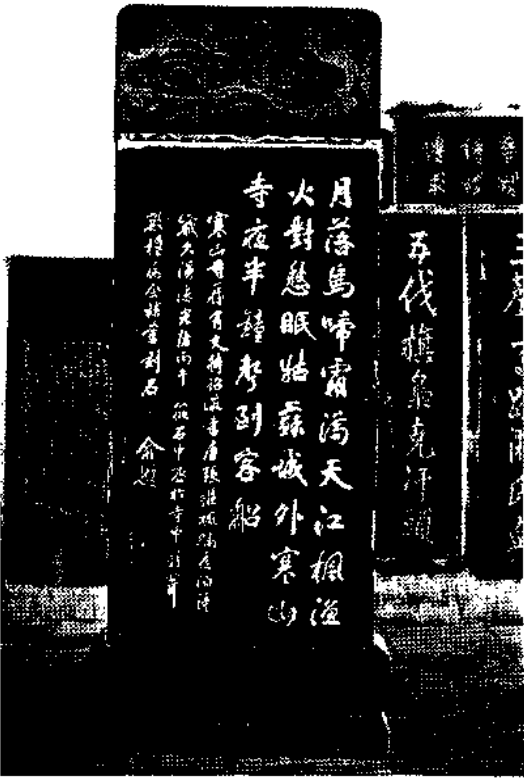 月落烏啼霜滿天江楓漁
火對愁眠姑蘇城外寒山
寺夜半鐘聲到客船
寒山寺舊有文待詔所書唐張繼楓橋夜泊詩
歲久漫漶光緒丙午筱石中丞於寺中新葺
數楹屬余補書刻石 俞樾
五伐擒梟克汗頭